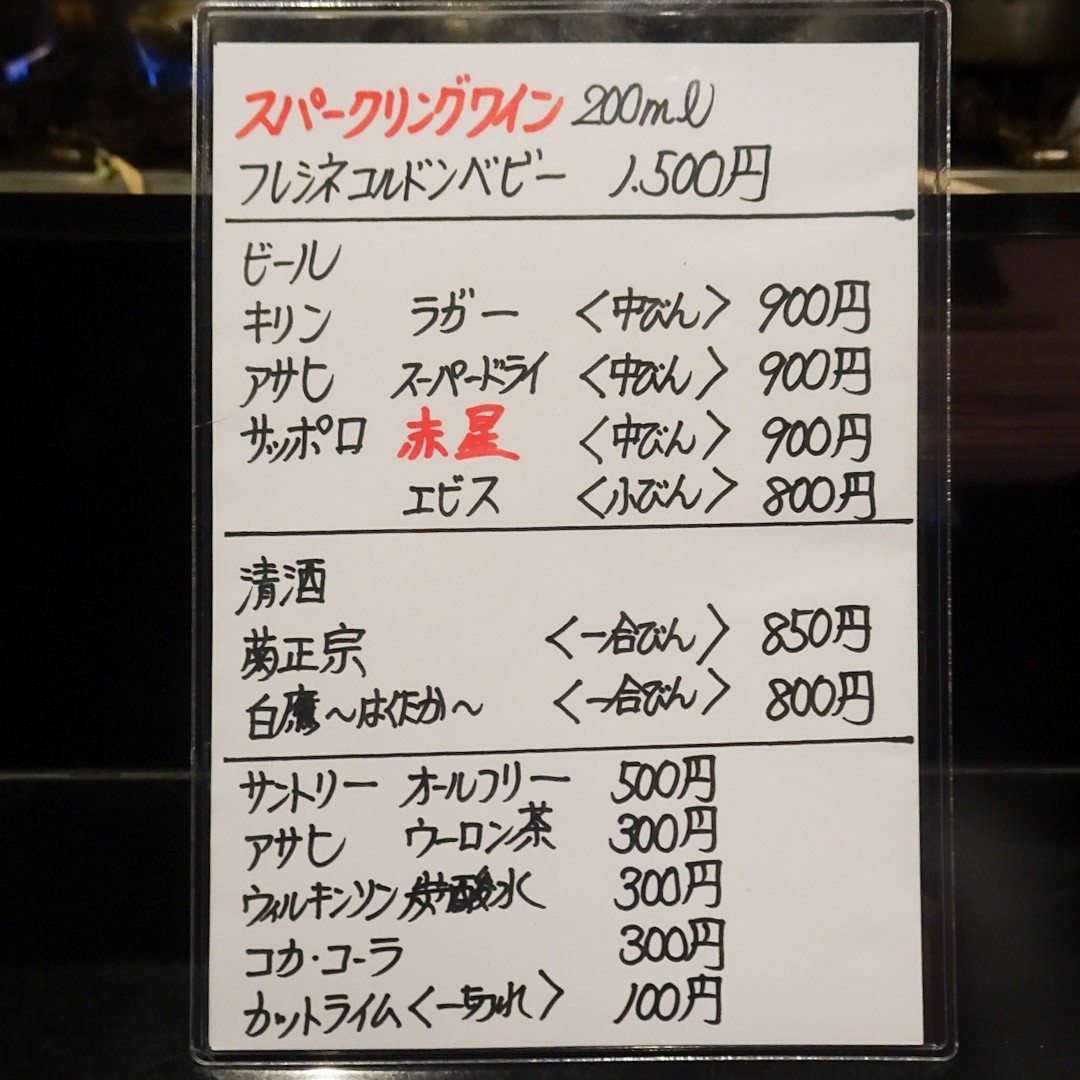 スパークリングワイン 200ml
フレシネコルドンベビー 1.500円
ビール
キリン ラガー 〈中びん〉 900円
アサヒ スーパードライ 〈中びん〉 900円
サッポロ 赤星 〈中びん〉 900円
エビス 〈小びん〉 800円
清酒
菊正宗 〈一合びん〉 850円
白鷹～はくたか～ 〈一合びん〉 800円
サントリー オールフリー 500円
アサヒ ウーロン茶 300円
ウィルキンソン 炭酸水 300円
コカ・コーラ 300円
カットライム〈一切れ〉 100円